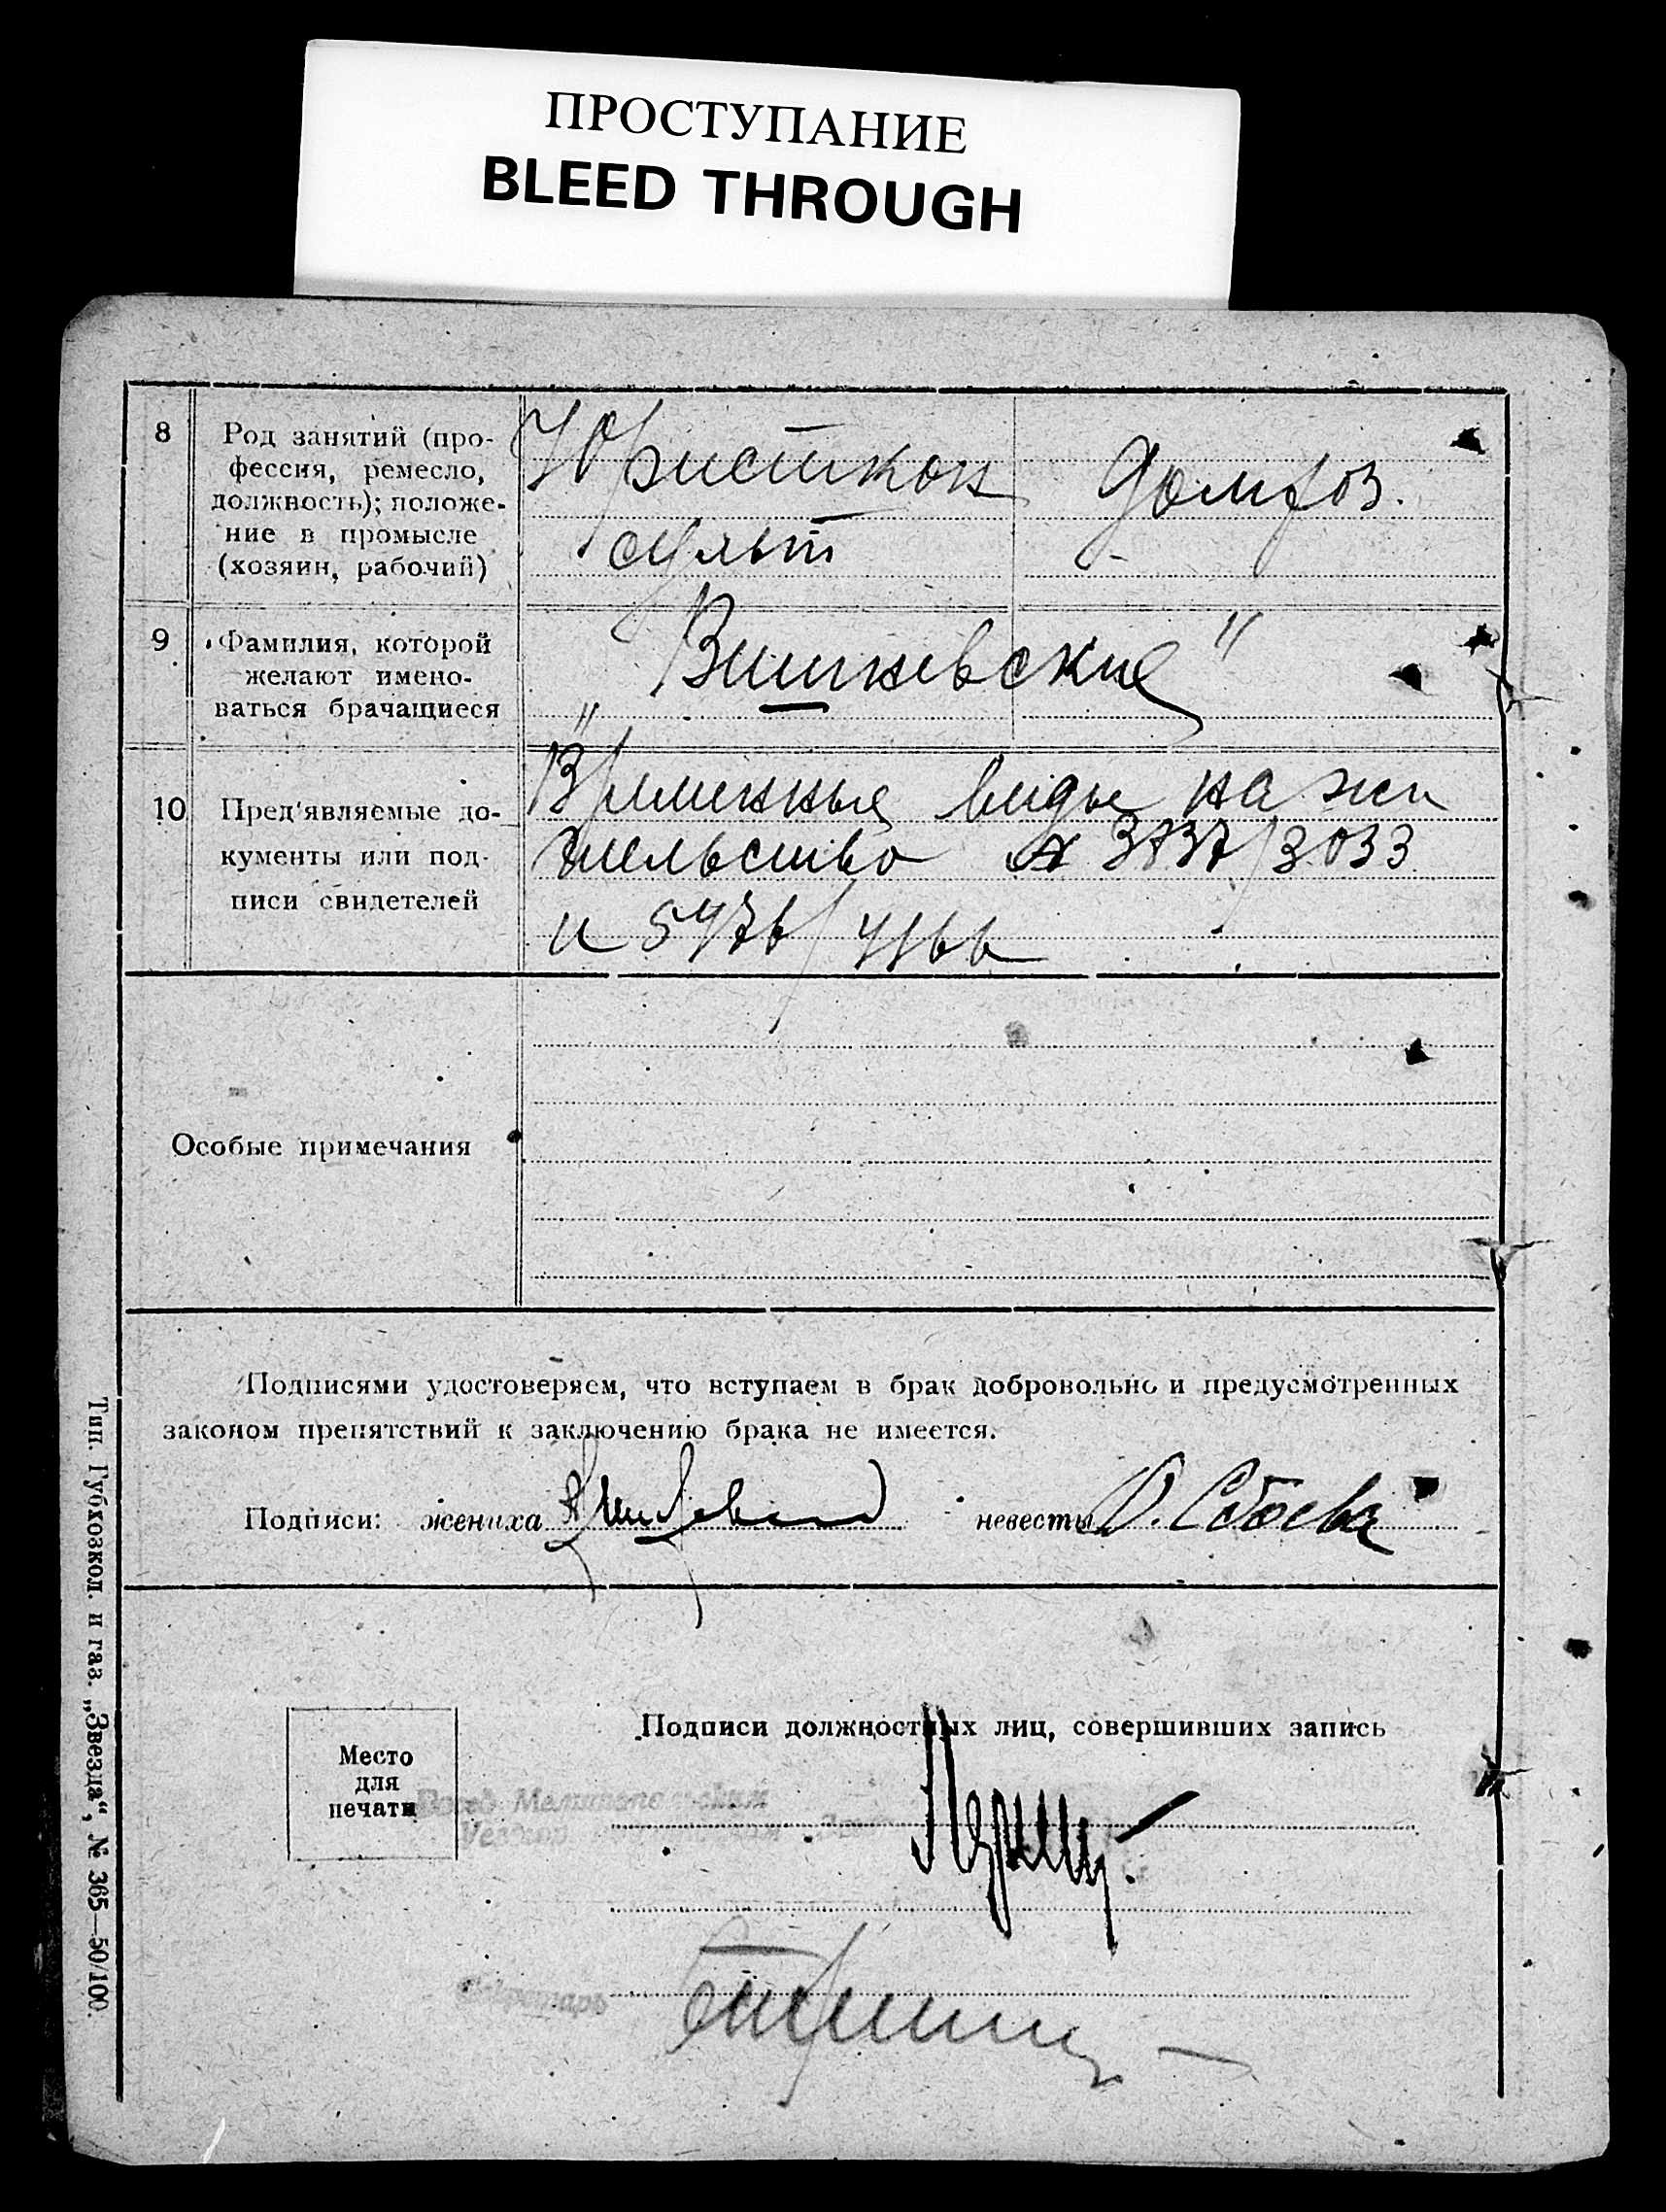 ПРОСТУПАНИЕ
BLEED THROUGH
8
Род занятий (про-
фессия, ремесло,
должность); положе-
ние в промысле
(хозяин, рабочий)
Юристкон
сульт
домхоз.
9
Фамилия, которой
желают имено-
ваться брачащиеся
„Вишневские"
10
Пред'являемые до-
кументы или под-
писи свидетелей
Временные виды на жи
тельство № 3737/3033
и 5476/
Особые примечания
Подписями удостоверяем, что вступаем в брак добровольно и предусмотренных
законом препятствий к заключению брака не имеется.
Подписи: жениха
невесты О. Сбоева
Подписи должностных лиц, совершивших запись
Место
для
печати
Секретарь
Тип. Губхозкол. и газ. „Звезда“, № 365—50/100.